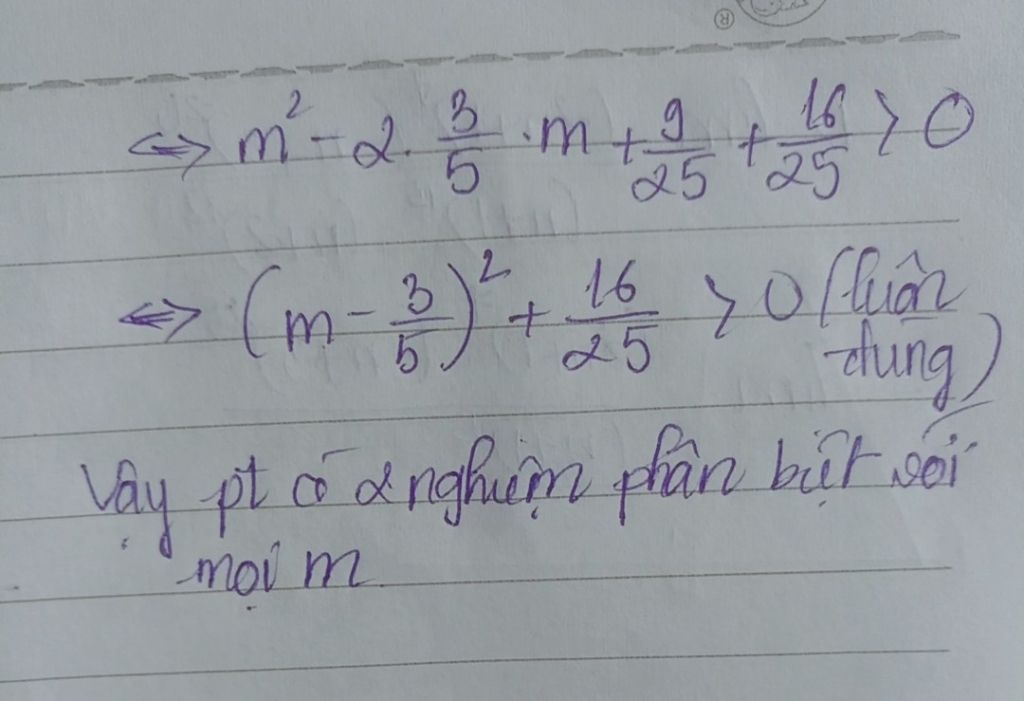 ®
⇔ m² - 2. 3/5 . m + 9/25 + 16/25 > 0
⇔ (m - 3/5)² + 16/25 > 0 (luôn
đung)
Vậy pt có 2 nghiệm phân biệt với
mọi m